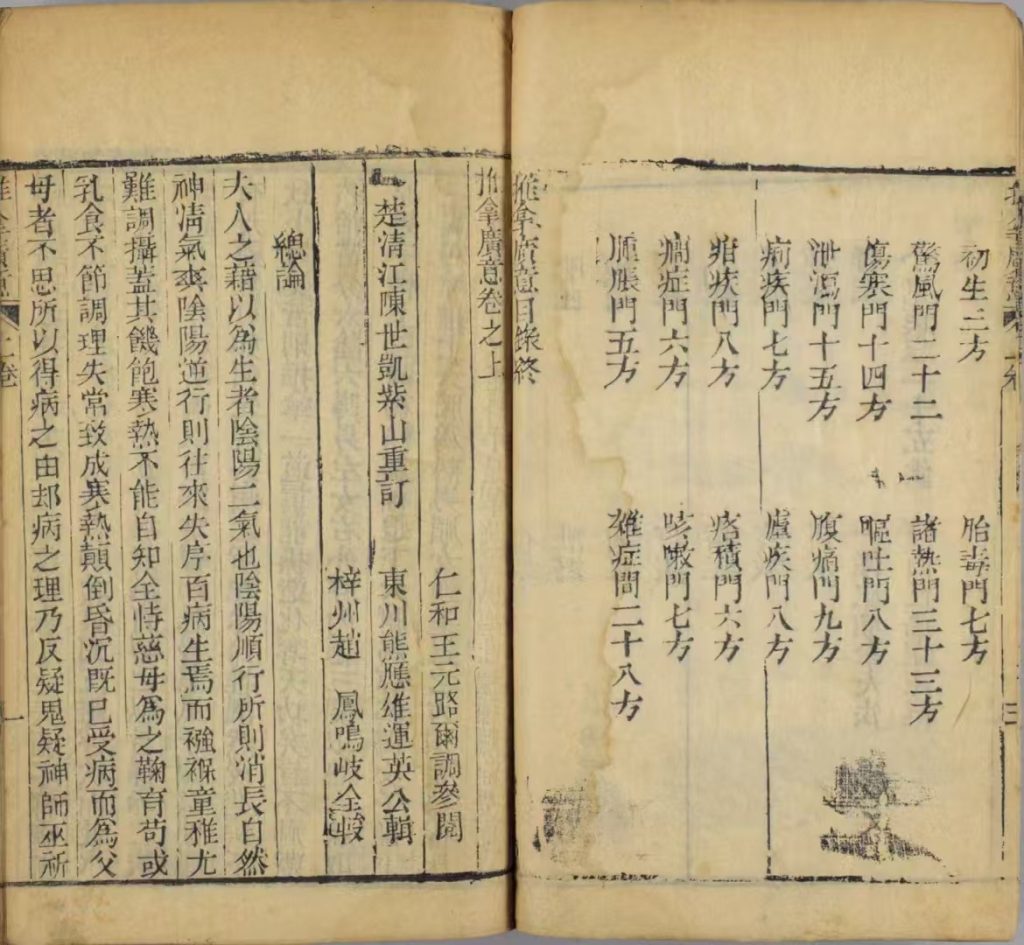 初生二方 胎毒門七方
驚風門二十二 諸熱門三十三方
傷寒門十四方 嘔吐門八方
泄瀉門十五方 腹痛門九方
痢疾門七方 瘧疾門八方
疳疾門八方 痞積門六方
癇症門六方 咳嗽門七方
腫脹門五方 雜症間二十八方
推拿廣意目錄終
推拿廣意卷之上
仁和王元路爾調參閱
楚清江陳世凱紫山重訂 東川熊應雄運英公輯
梓州趙 鳳鳴岐仝
總論
夫人之藉以為生者陰陽二氣也陰陽順行所則消長自然
神清氣爽陰陽逆行則往來失序百病生焉而襁褓童稚尤
難調攝蓋其饑飽寒熱不能自知全恃慈母為之鞠育苟或
乳食不節調理失常致成寒熱顛倒昏沉既已受病而為父
母者不思所以得病之由却病之理乃反疑鬼疑神師巫祈
推拿廣意 上卷 一